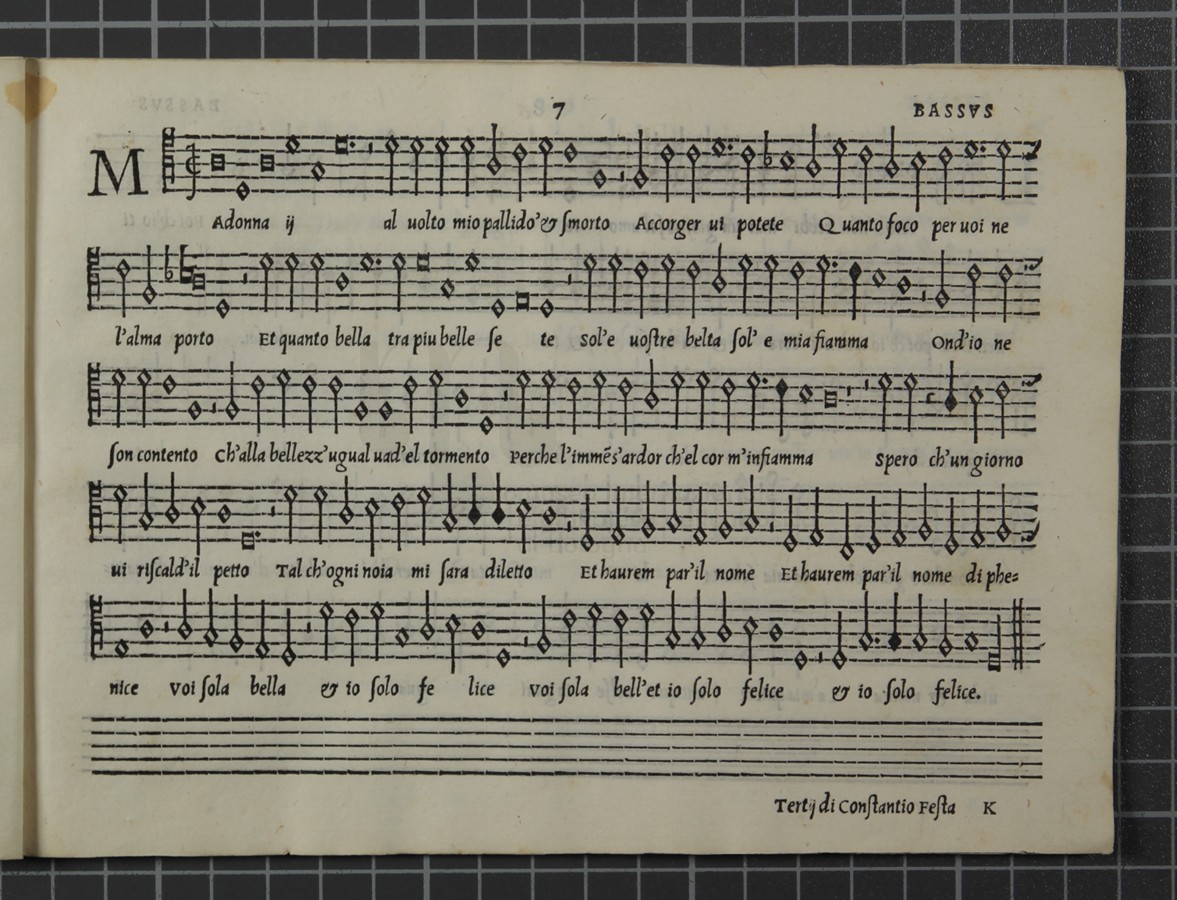 7 BASSVS
MAdonna ij al uolto mio pallido'& ſmorto Accorger ui potete Quanto foco per uoi ne
l'alma porto Et quanto bella tra piu belle ſe te sol'e uoſtre belta ſol' e mia fiamma Ond'io ne
ſon contento Ch'alla bellezz'ugual uad'el tormento Perche l'immẽs'ardor ch'el cor m'infiamma Spero ch'un giorno
ui riſcald'il petto Tal ch'ogni noia mi ſara diletto Et haurem par'il nome Et haurem par'il nome di phe=
nice voi ſola bella & io ſolo fe lice voi ſola bell'et io ſolo felice & io ſolo felice.
Tertij di Conſtantio Feſta K